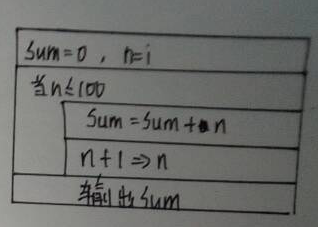 sum=0，n=i
当n≤100
sum=sum+n
n+1⇒n
输出sum